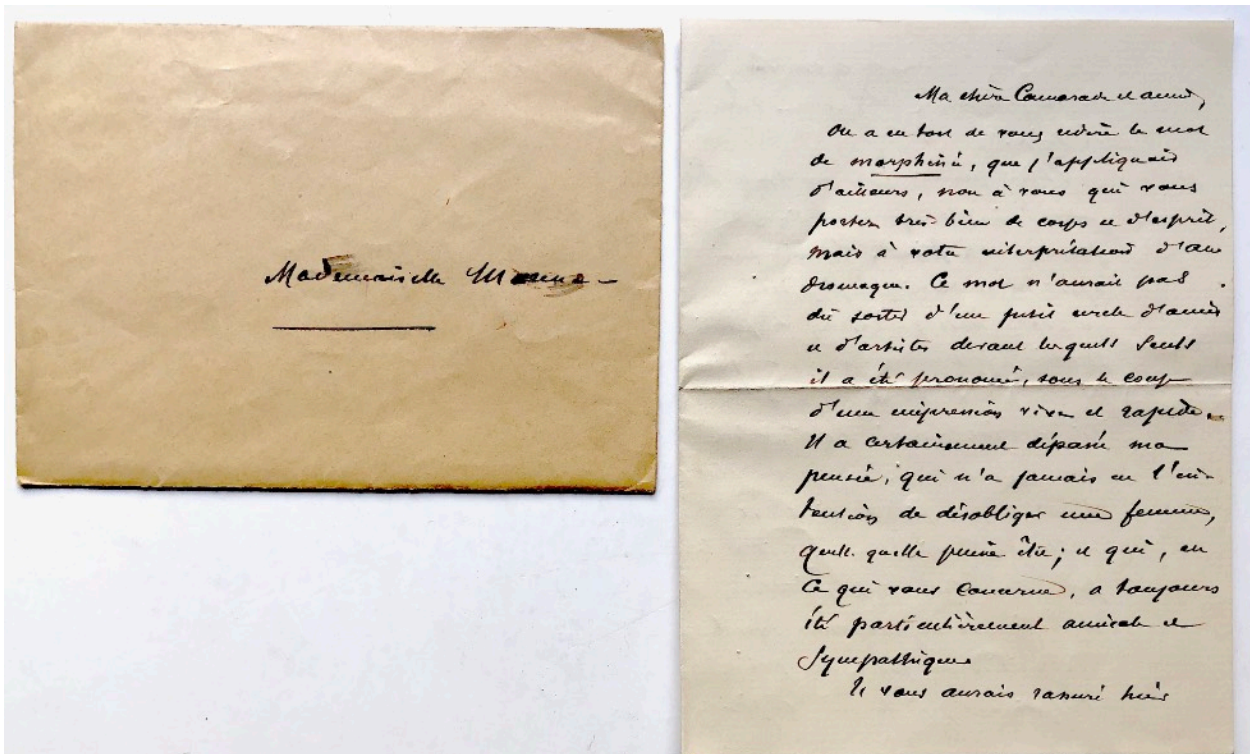 Mademoiselle
Ma chère Camarade et amie,
On a eu tort de vous redire le mot
de morphinée, que j'appliquais
d'ailleurs, non à vous qui vous
portez très bien de corps et d'esprit,
mais à votre interprétation d'An
dromaque. Ce mot n'aurait pas
dû sortir d'un petit cercle d'amis
et d'artistes devant lesquels seuls
il a été prononcé, sous le coup
d'une impression vive et rapide.
Il a certainement dépassé ma
pensée, qui n'a jamais eu l'in-
tention de désobliger une femme,
quelle qu'elle puisse être; et qui, en
ce qui vous concerne, a toujours
été particulièrement amicale et
sympathique
Je vous aurais rassuré hier